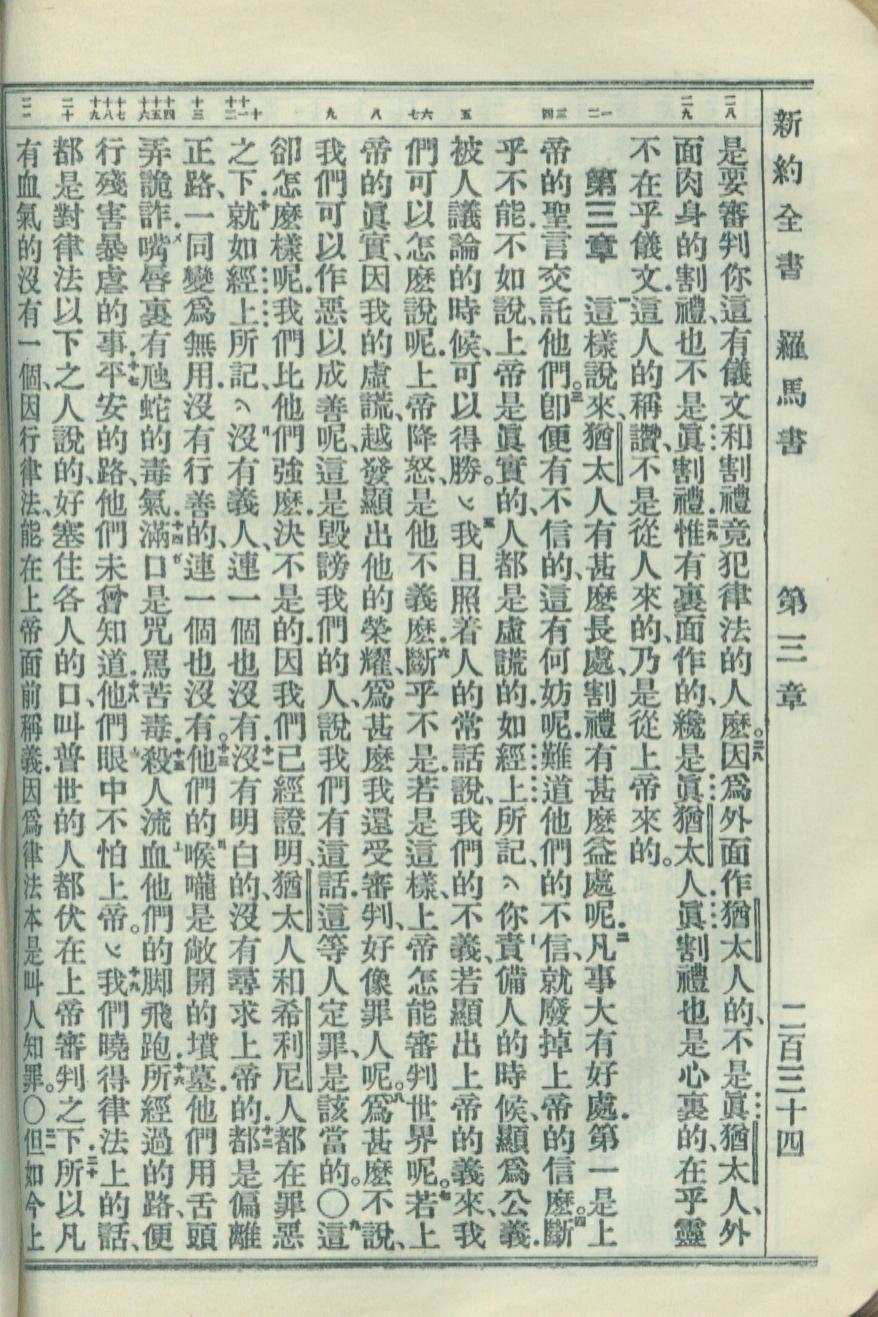 新約全書 羅馬書 第三章 二百三十四
二八 二九 一二 三四 五 六七 八 九 十 十一十二 十三 十四十五十六 十七十八十九 二十 二一
是要審判你這有儀文和割禮竟犯律法的人麼。二八因爲外面作猶太人的、不是眞猶太人、外
面肉身的割禮、也不是眞割禮.二九惟有裏面作的、纔是眞猶太人.眞割禮也是心裏的、在乎靈
不在乎儀文.這人的稱讚、不是從人來的、乃是從上帝來的。
第三章 一這樣說來、猶太人有甚麼長處.割禮有甚麼益處呢.二凡事大有好處.第一是上
帝的聖言交託他們。三卽便有不信的、這有何妨呢.難道他們的不信、就廢掉上帝的信麼。四斷
乎不能.不如說、上帝是眞實的、人都是虛謊的.如經上所記、你責備人的時候、顯爲公義.
被人議論的時候、可以得勝。五我且照着人的常話說、我們的不義、若顯出上帝的義來、我
們可以怎麼說呢.上帝降怒、是他不義麼.六斷乎不是.若是這樣、上帝怎能審判世界呢。七若上
帝的眞實、因我的虛謊、越發顯出他的榮耀、爲甚麼我還受審判、好像罪人呢。八爲甚麼不說、
我們可以作惡以成善呢.這是毀謗我們的人、說我們有這話.這等人定罪、是該當的.〇九這
卻怎麼樣呢.我們比他們強麼.決不是的.因我們已經證明、猶太人和希利尼人都在罪惡
之下.十就如經上所記、沒有義人、連一個也沒有.十一沒有明白的、沒有尋求上帝的.十二都是偏離
正路、一同變爲無用.沒有行善的、連一個也沒有。十三他們的喉嚨是敞開的墳墓.他們用舌頭
弄詭詐.嘴唇裏有虺蛇的毒氣.十四滿口是咒罵苦毒.十五殺人流血他們的脚飛跑.十六所經過的路、便
行殘害暴虐的事.十七平安的路、他們未曾知道.十八他們眼中不怕上帝。十九我們曉得律法上的話、
都是對律法以下之人說的、好塞住各人的口、叫普世的人都伏在上帝審判之下.二十所以凡
有血氣的沒有一個、因行律法、能在上帝面前稱義.因爲律法本是叫人知罪。〇二一但如今上